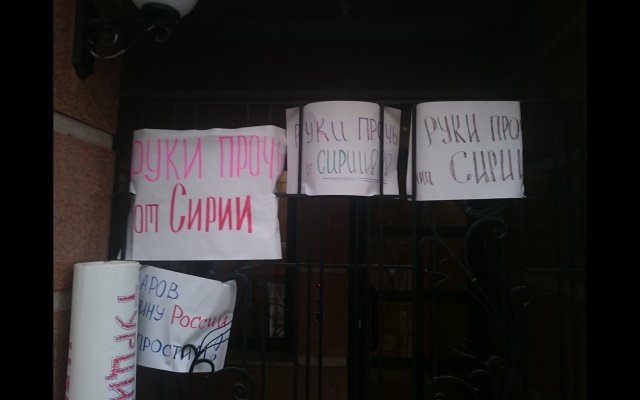 РУКИ ПРОЧЬ
от Сирии
РУКИ ПРОЧЬ
от СИРИИ!
РУКИ ПРО
от СИРИИ
АРОВ
ИНУ России
ПРОСТИ